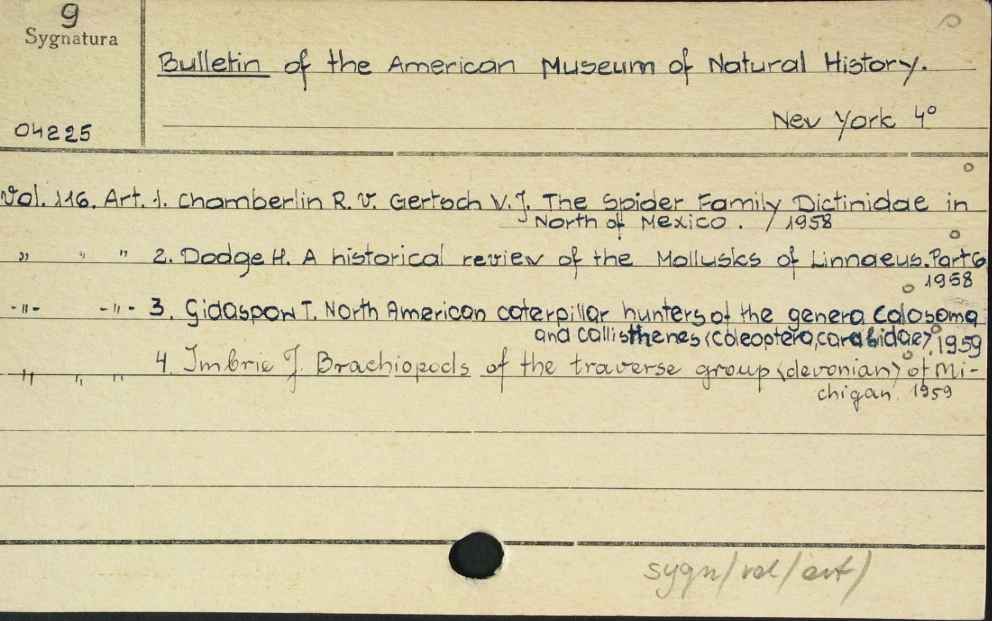 9
Sygnatura
04225
Bulletin of the American Museum of Natural History.
New York 4°
Vol. 116. Art. 1. Chamberlin R. V. Gertsch V. J. The Spider Family Dictinidae in
North of Mexico. / 1958
" " " 2. Dodge H. A historical review of the Mollusks of Linnaeus. Part 6
1958
-"- -"- 3. Gidaspow T. North American caterpillar hunters of the genera Calosoma
and Callisthenes (Coleoptera, carabidae) 1959
" " " 4. Imbrie J. Brachiopods of the traverse group (devonian) of Mi-
chigan. 1959
sygn/vol/art/